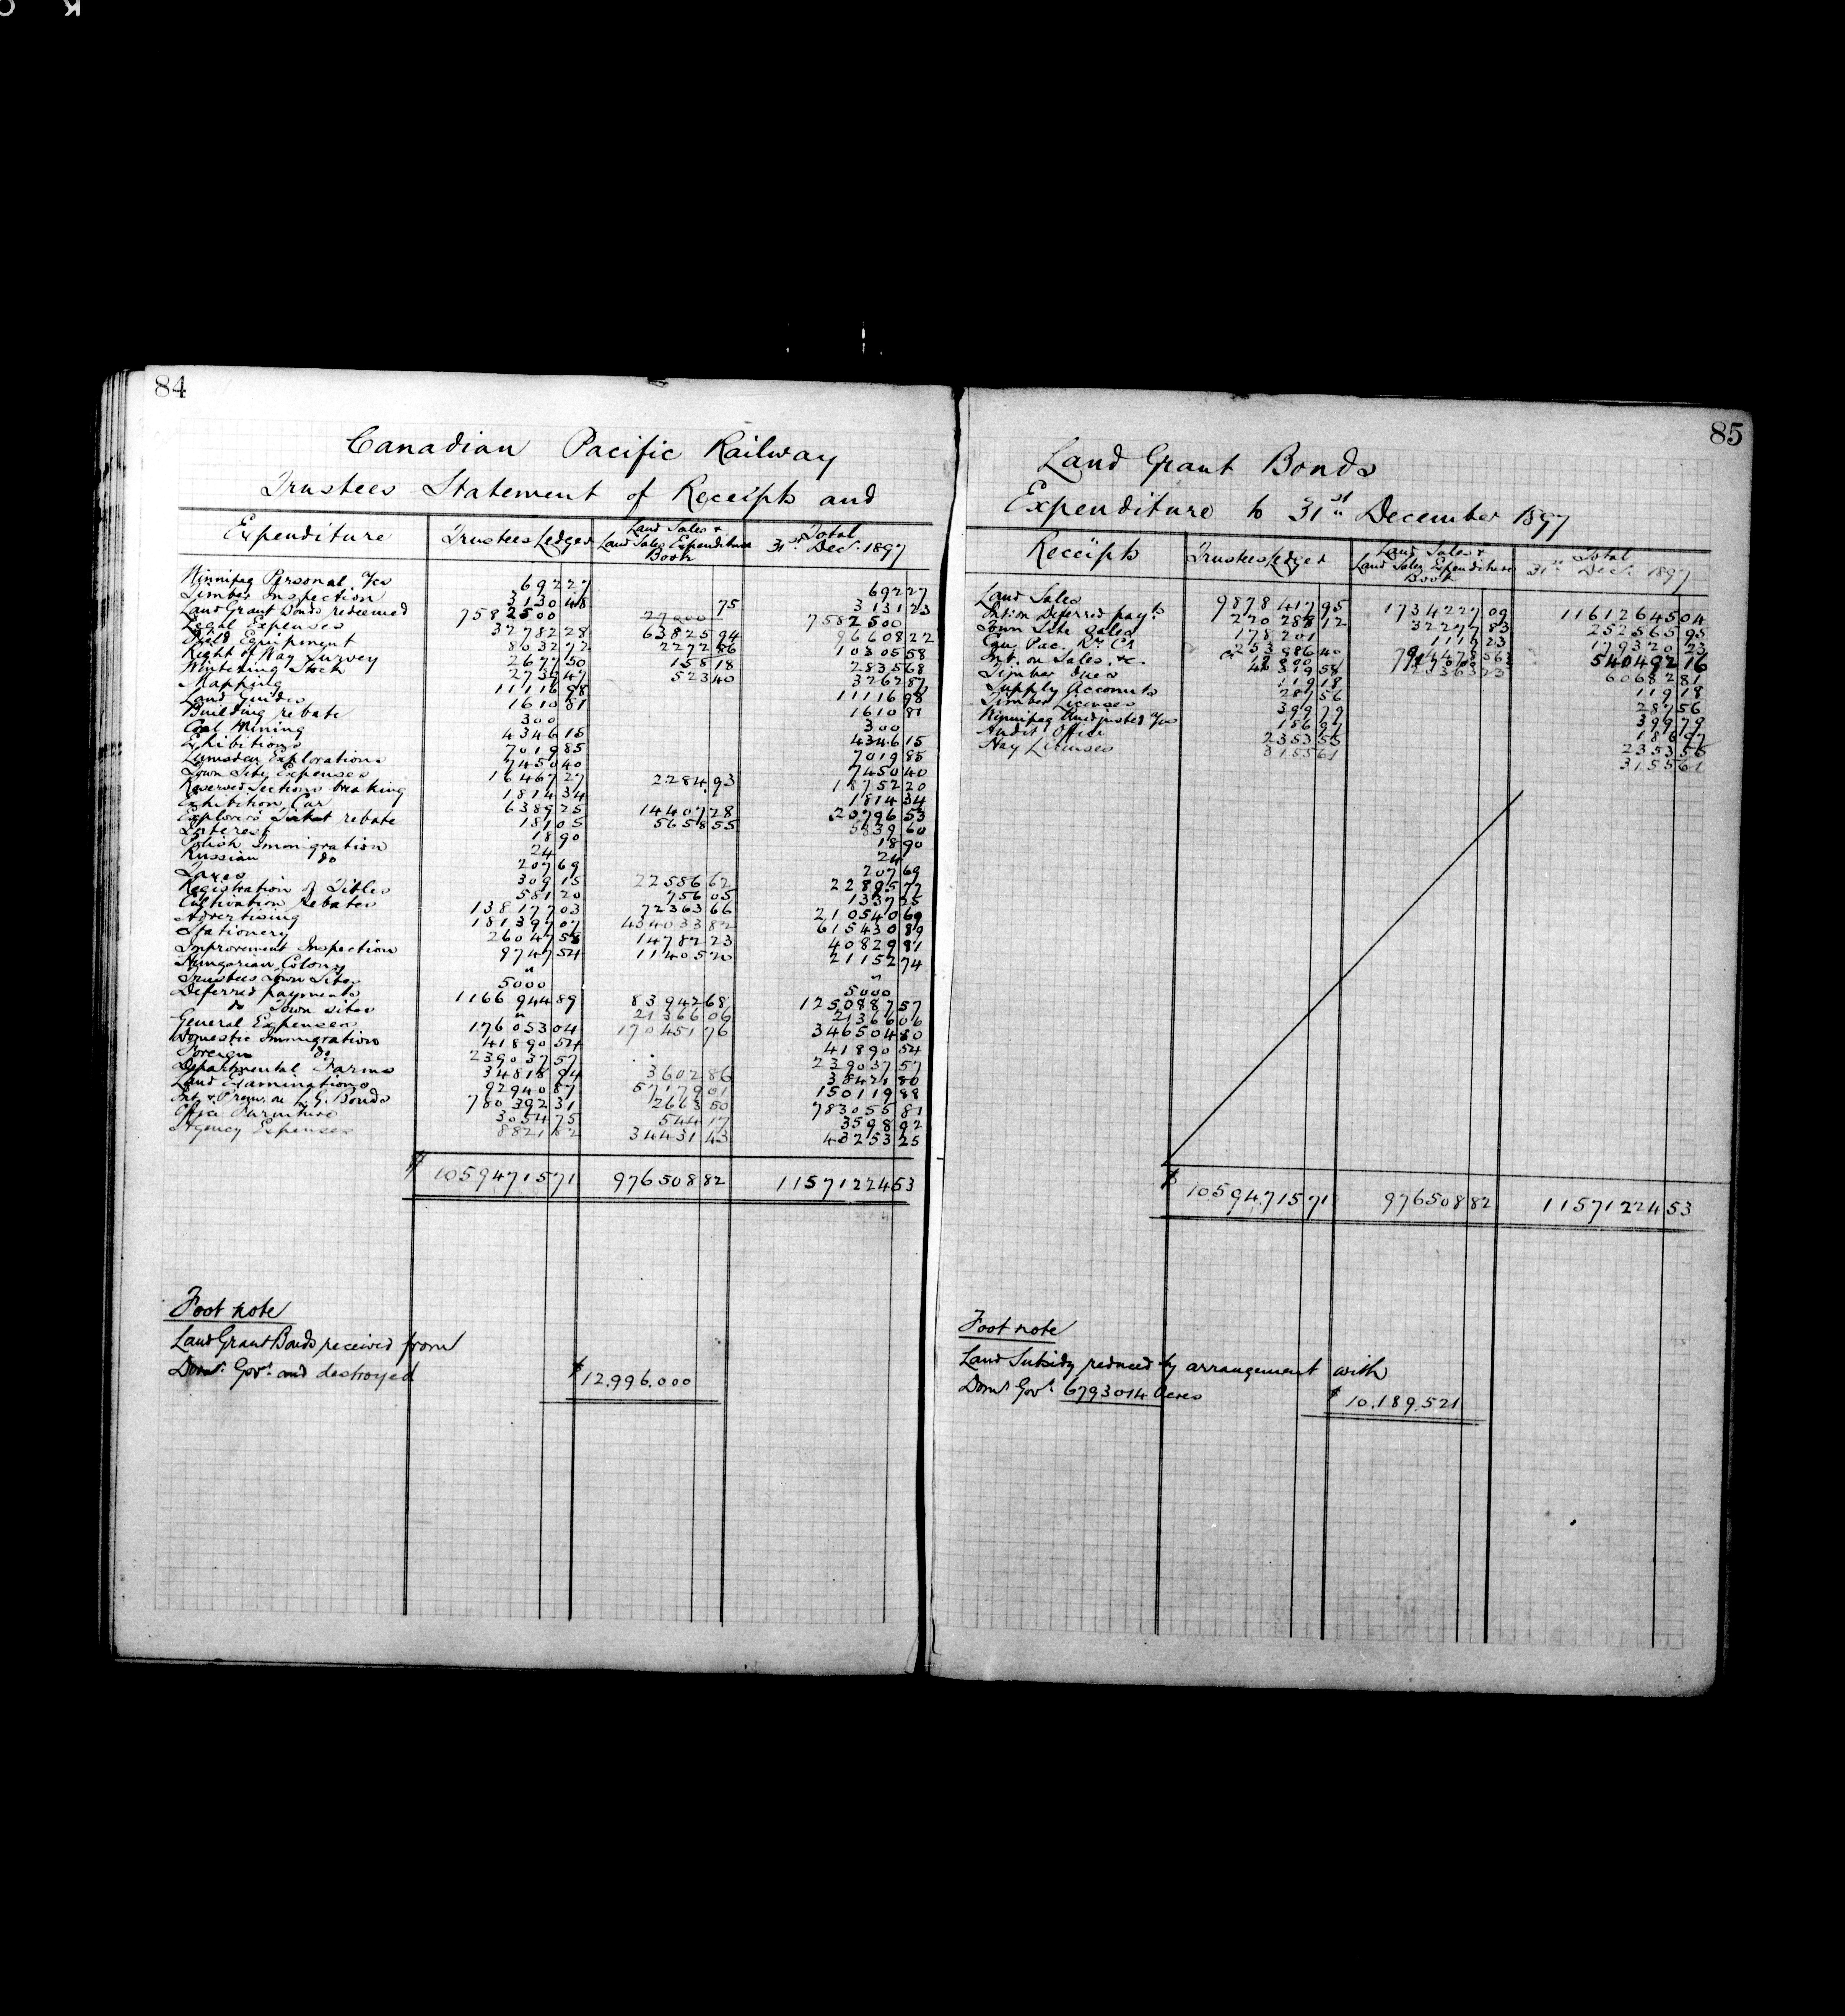 84
Canadian Pacific Railway
Trustees Statement of Receipts and
Expenditure Trustees Ledger Land Sales & Land Sales Expenditure Book Total 31st Decr. 1897
Winnipeg Personal a/cs 692 27 692 27
Timber Inspection 3130 48 75 3131 23
Land Grant Bonds redeemed 7582500 7582500
Legal Expenses 32782 28 63825 94 96608 22
Field Equipment 8032 72 2272 86 10305 58
Right of Way Survey 2677 50 158 18 2835 68
Wintering Stock 2739 47 523 40 3262 87
Mapping 11116 98 11116 98
Land Guides 1610 81 1610 81
Building rebate 300 300
Coal Mining 4346 15 4346 15
Exhibitions 7019 85 7019 85
Lumsden Explorations 7450 40 7450 40
Town Site Expenses 16467 27 2284 93 18752 20
Reserved Sections breaking 1814 34 1814 34
Exhibition Car 6389 25 14407 28 20796 53
Explorers Ticket rebate 181 05 5658 55 5839 60
Interest 18 90 18 90
Polish Immigration 24 24
Russian do 207 69 207 69
Taxes 309 15 22586 62 22895 77
Registration of Titles 581 20 756 05 1337 25
Cultivation Rebates 138177 03 72363 66 210540 69
Advertising 181397 07 434033 82 615430 89
Stationery 26047 58 14782 23 40829 81
Improvement Inspection 9747 54 11405 20 21152 74
Hungarian Colony " "
Trustees Town Sites 5000 5000
Deferred payments 1166944 89 83942 68 1250887 57
do Town Sites " 21366 06 21366 06
General Expenses 176053 04 170451 76 346504 80
Domestic Immigration 41890 54 41890 54
Foreign do 239037 57 239037 57
Departmental Farms 34818 94 3602 86 38421 80
Land Examinations 92940 87 57179 01 150119 88
Int. & Prem. on L.G. Bonds 780392 31 2663 50 783055 81
Office Furniture 3054 75 544 17 3598 92
Agency Expenses 8821 82 34431 43 43253 25
$ 10594715 71 976508 82 11571224 53
Foot note
Land Grant Bonds received from
Domn. Govt. and destroyed $12.996.000
85
Land Grant Bonds
Expenditure to 31st December 1897
Receipts Trustees Ledger Land Sales & Land Sales Expenditure Book Total 31st Decr. 1897
Land Sales 9878417 95 1734227 09 11612645 04
Int. on Deferred payts. 220288 12 32277 83 252565 95
Town Site Sales 178201 1119 23 179320 23
Can. Pac. Ry. Co 540492 16
Int. on Sales &c.
Timber Dues 60682 81
Supply Accounts 119 18 119 18
Timber Licenses 287 56 287 56
Winnipeg Unadjusted a/cs 399 79 399 79
Audit Office 186 97 186 97
Hay Licenses 2353 55 2353 55
3155 61 3155 61
$ 10594715 71 976508 82 11571224 53
Foot note
Land Subsidy reduced by arrangement with
Domn. Govt. 6793014 Acres $10.189.521